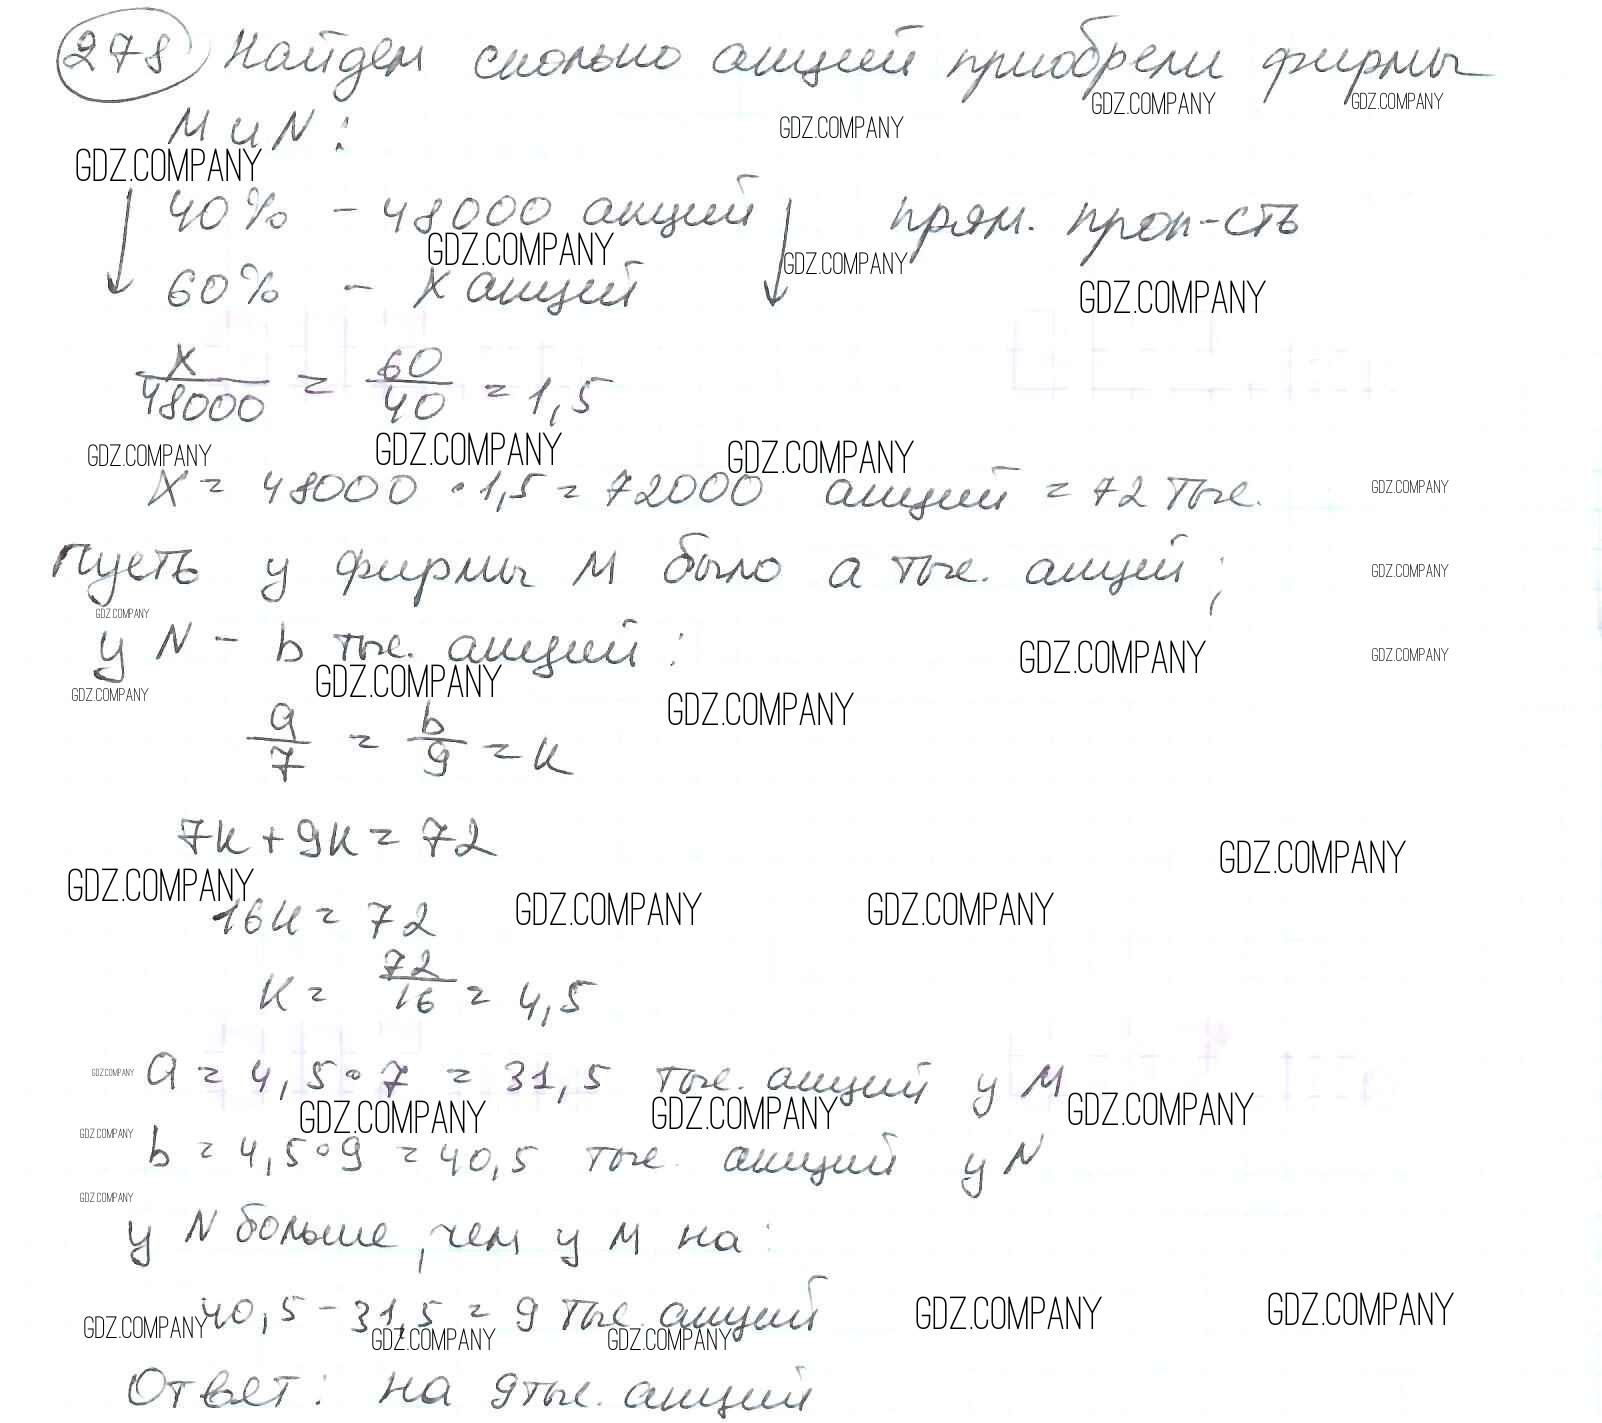 278 Найдем сколько акций приобрели фирмы
GDZ.COMPANY GDZ.COMPANY
GDZ.COMPANY
М и N:
GDZ.COMPANY
40% - 48000 акций прям. проп-сть
GDZ.COMPANY GDZ.COMPANY
60% - x акций GDZ.COMPANY
x/48000 = 60/40 = 1,5
GDZ.COMPANY GDZ.COMPANY GDZ.COMPANY
x = 48000 · 1,5 = 72000 акций = 72 тыс. GDZ.COMPANY
Пусть у фирмы М было а тыс. акций; GDZ.COMPANY
GDZ.COMPANY
у N - b тыс. акций: GDZ.COMPANY GDZ.COMPANY
GDZ.COMPANY GDZ.COMPANY GDZ.COMPANY
a/7 = b/9 = к
7к + 9к = 72
GDZ.COMPANY GDZ.COMPANY
16к = 72 GDZ.COMPANY GDZ.COMPANY
к = 72/16 = 4,5
GDZ.COMPANY а = 4,5 · 7 = 31,5 тыс. акций у М
GDZ.COMPANY GDZ.COMPANY GDZ.COMPANY
GDZ.COMPANY b = 4,5 · 9 = 40,5 тыс. акций у N
GDZ.COMPANY
у N больше, чем у М на:
40,5 - 31,5 = 9 тыс. акций GDZ.COMPANY GDZ.COMPANY
GDZ.COMPANY GDZ.COMPANY GDZ.COMPANY
Ответ: на 9 тыс. акций